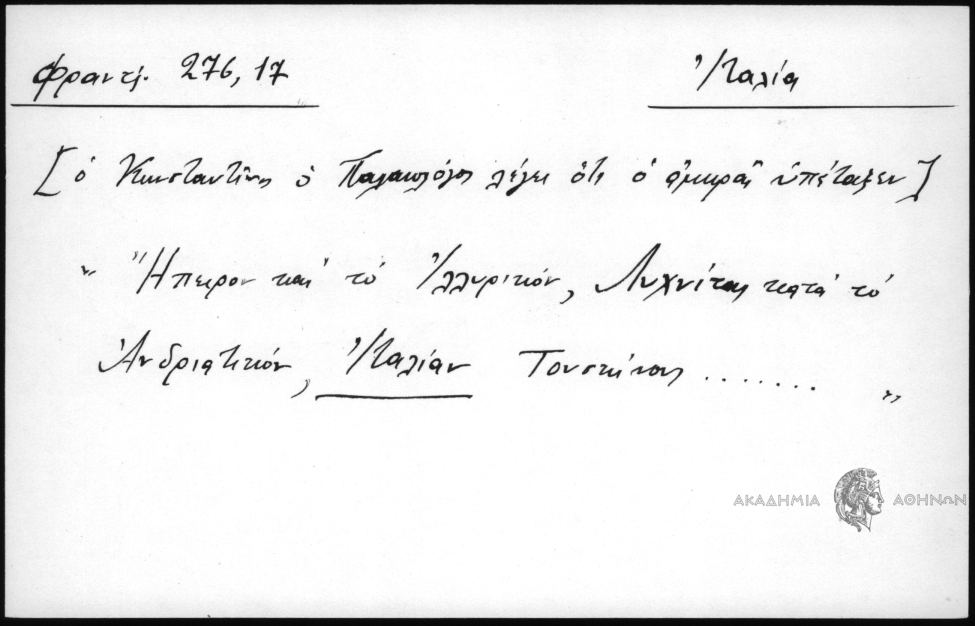 Φραντζ. 276, 17
Ἰταλία
[ὁ Κωνσταντῖνος ὁ Παλαιολόγος λέγει ὅτι ὁ ἀμιρᾶς ὑπέταξεν]
" Ἤπειρον καὶ τὸ Ἰλλυρικόν, Λυχνίτας κατὰ τὸ
Ἀνδριατικόν, Ἰταλίαν Τουσκίνους ....... "
ΑΚΑΔΗΜΙΑ ΑΘΗΝΩΝ